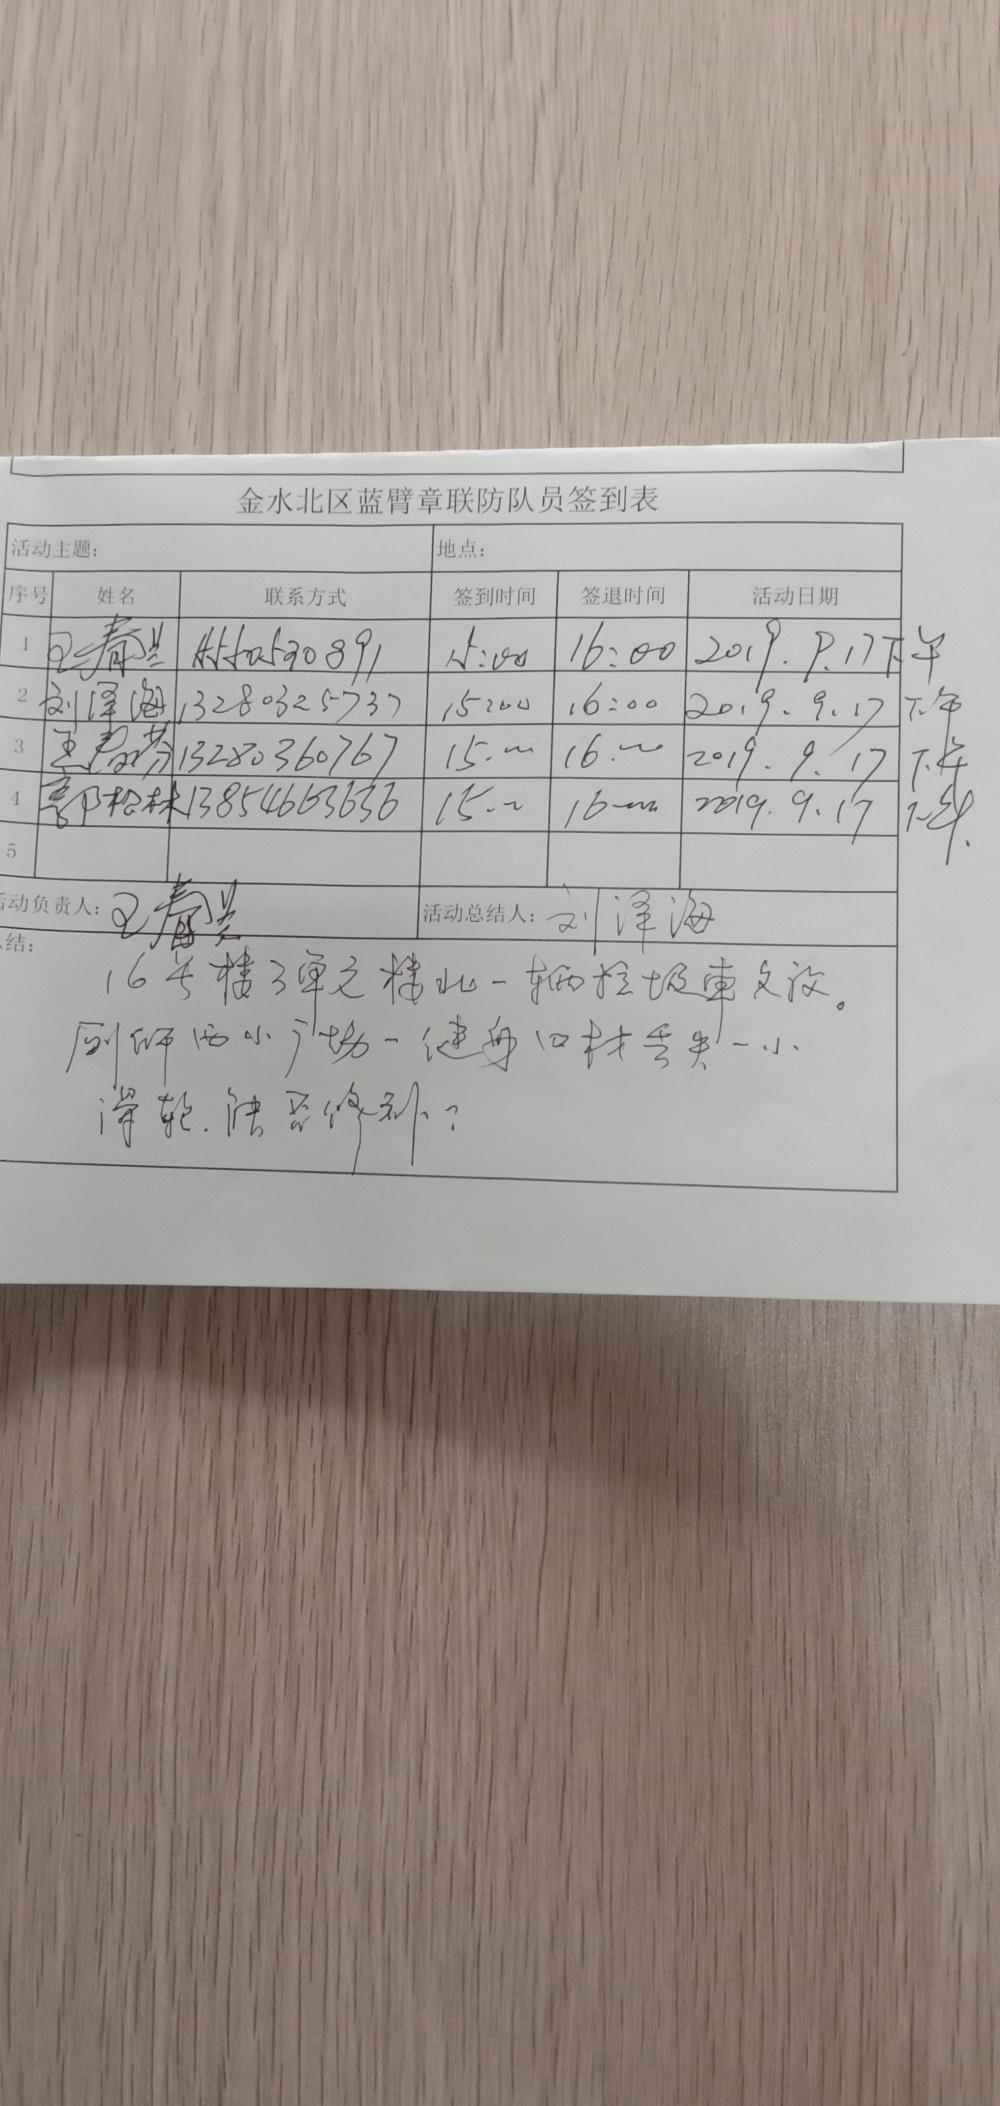 金水北区蓝臂章联防队员签到表
活动主题: 地点:
序号 姓名 联系方式 签到时间 签退时间 活动日期
1 王春兴 15:00 16:00 2019.9.17下午
2 刘泽海 13280325737 15:00 16:00 2019.9.17 下午
3 王 13280360767 15 16 2019.9.17 下午
4 郭松林 13854663636 15 16 2019.9.17 下午.
5
活动负责人: 王春兴 活动总结人: 刘泽海
结:
16号楼3单元楼北一辆垃圾車
西小广场一健身口材丢失一小
滑轮.能否修补?